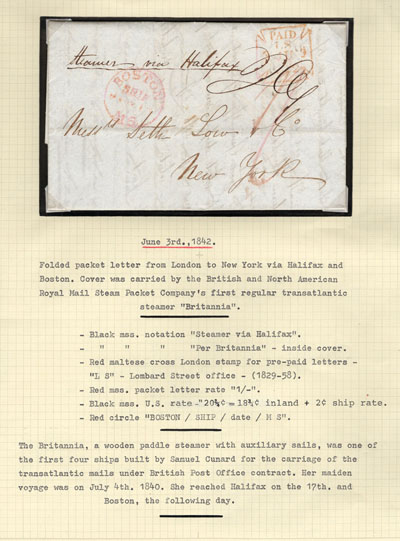 Steamer via Halifax
PAID
LS
BOSTON
SHIP
MS
Messrs Seth Low & Co
New York
June 3rd.,1842.
Folded packet letter from London to New York via Halifax and
Boston. Cover was carried by the British and North American
Royal Mail Steam Packet Company's first regular transatlantic
steamer "Britannia".
- Black mss. notation "Steamer via Halifax".
- " " " "Per Britannia" - inside cover.
- Red maltese cross London stamp for pre-paid letters -
"L S" - Lombard Street office - (1829-58).
- Red mss. packet letter rate "1/-".
- Black mss. U.S. rate -"20¾¢ = 18¾¢ inland + 2¢ ship rate.
- Red circle "BOSTON / SHIP / date / M S".
The Britannia, a wooden paddle steamer with auxiliary sails, was one of
the first four ships built by Samuel Cunard for the carriage of the
transatlantic mails under British Post Office contract. Her maiden
voyage was on July 4th. 1840. She reached Halifax on the 17th. and
Boston, the following day.